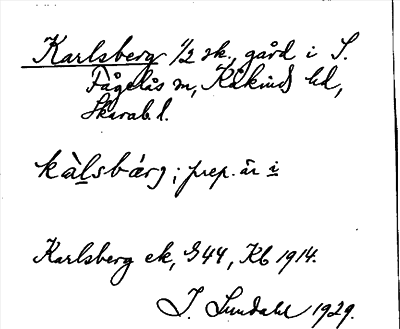 Karlsberg 1/2 sk., gård i S.
Fågelås sn, Kåkinds hd,
Skarab. l.
kàlsbárj; prep. är i
Karlsberg ek, G44, Kb 1914.
J. Sundahl 1929.